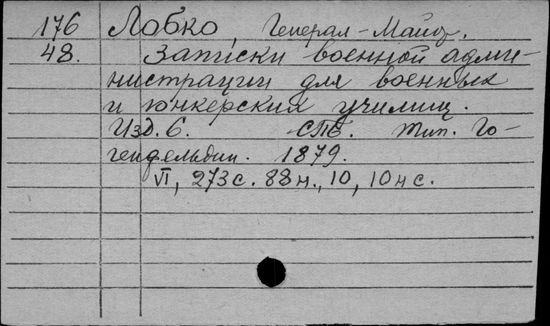 176 Лобко, Генерал-Майор.
48. Записки военной адми-
нистрации для военных
и юнкерских училищ.
Изд. 6. СПб. Тип. Го-
генфельден. 1879.
VI, 273 с. 88 н., 10, 10 н с.